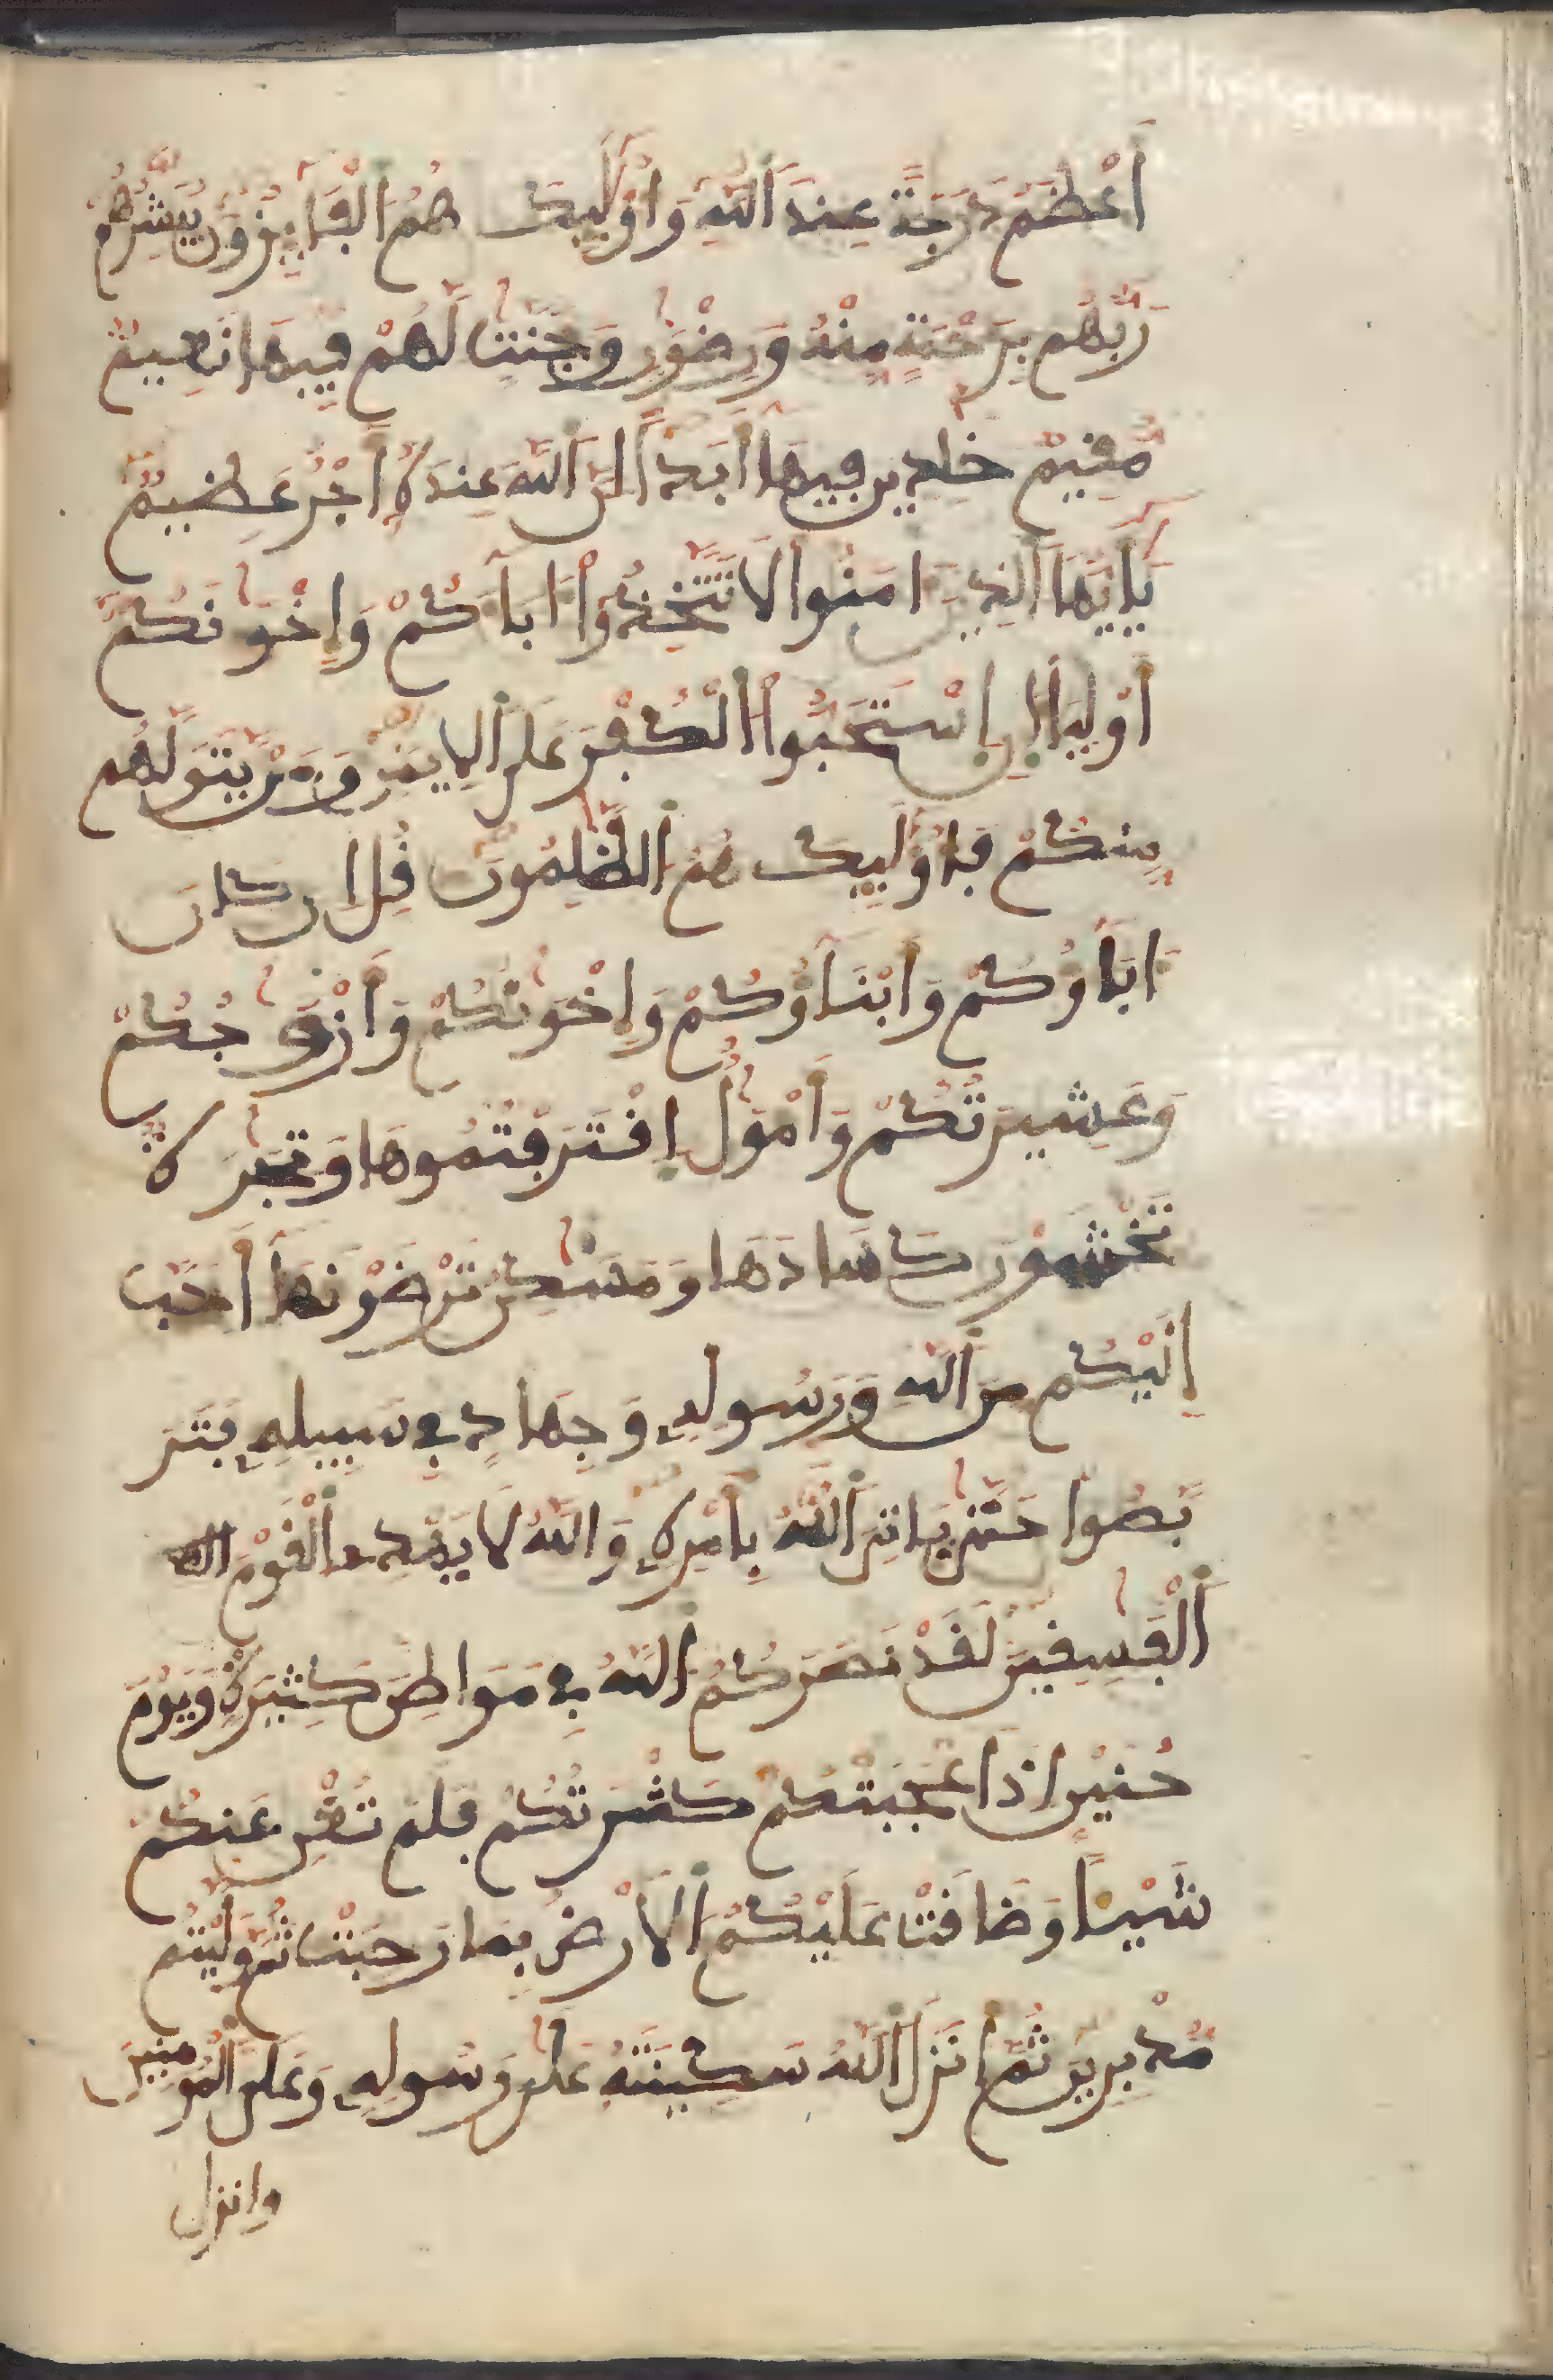 أَعْظَمُ دَرَجَةً عِندَ اَللَّهِ وَأُوْلَٰٓئِكَ هُمُ اُلْفَآئِزُونَ يُبَشِّرُهُمْ
رَبُّهُم بِرَحْمَةٍ مِّنْهُ وَرِضْوَٰنٍ وَجَنَّٰتٍ لَّهُمْ فِيهَا نَعِيمٌ
مُّقِيمٌ خَٰلِدِينَ فِيهَا أَبَداً اِنَّ اَللَّهَ عِندَهُ أَجْرٌ عَظِيمٌ
يَٰأَيُّهَا اَلذِينَ ءَامَنُوا لَا تَتَّخِذُوا ءَابَآءَكُمْ وَإِخْوَٰنَكُمْ
أَوْلِيَآءَ انِ اِسْتَحَبُّوا اُلْكُفْرَ عَلَى اَلِايمَٰنِ وَمَنْ يَّتَوَلَّهُم
مِّنكُمْ فَأُوْلَٰئِكَ هُمُ اُلظَّٰلِمُونَ قُلِ ان كَانَ
ءَابَآؤُكُمْ وَأَبْنَآؤُكُمْ وَإِخْوَٰنُكُمْ وَأَزْوَٰجُكُمْ
وَعَشِيرَتُكُمْ وَأَمْوَٰلٌ اِقْتَرَفْتُمُوهَا وَتِجَٰرَةٌ
تَخْشَوْنَ كَسَادَهَا وَمَسَٰكِنُ تَرْضَوْنَهَا أَحَبَّ
إِلَيْكُم مِّنَ اَللَّهِ وَرَسُولِهِ وَجِهَادٍ فِي سَبِيلِهِ فَتَرَ
بَّصُوا حَتَّىٰ يَاتِيَ اَللَّهُ بِأَمْرِهِ وَاللَّهُ لَا يَهْدِي اِلْقَوْمَ
اَلْفَٰسِقِينَ لَقَدْ نَصَرَكُمُ اُللَّهُ فِي مَوَاطِنَ كَثِيرَةٍ وَيَوْمَ
حُنَيْنٍ اذَ اَعْجَبَتْكُمْ كَثْرَتُكُمْ فَلَمْ تُغْنِ عَنكُمْ
شَيْـًٔا وَضَاقَتْ عَلَيْكُمُ اُلَارْضُ بِمَا رَحُبَتْ ثُمَّ وَلَّيْتُم
مُّدْبِرِينَ ثُمَّ أَنزَلَ اَللَّهُ سَكِينَتَهُ عَلَىٰ رَسُولِهِ وَعَلَى اَلْمُومِنِينَ
وانزل